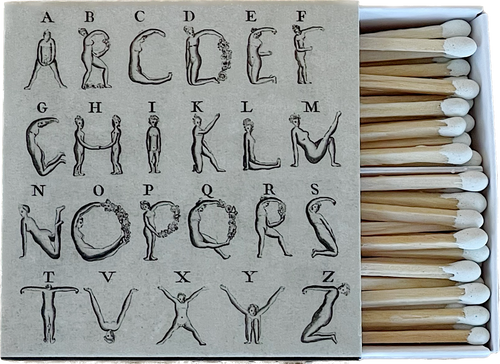 A B C D E F
G H I K L M
N O P Q R S
T V X Y Z